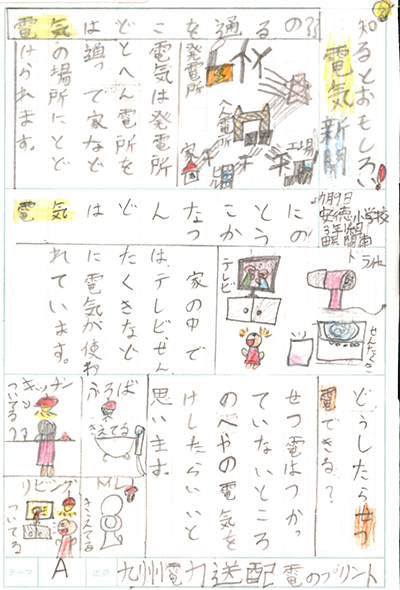 知るとおもしろい!
電気新聞
安徳小学校
電気はどこを通るの
電気は発電所
とへん電所を
通って家など
の場所にとど
けられます。
発電所
へん電所
工場
家
電気はどんなことに
つかうの
ドライヤー
せんたくき
テレビ
家の中で
はテレビせん
たくきなど
に電気が使わ
れています。
どうしたらせつ
電できる?
せつ電はつかっ
ていないところ
のへやの電気を
けしたらいいと
思います。
ふろば
きえてる
キッチン
ついてる
きえてる
リビング
ついてる
テーマ
A
出典
九州電力送配電のプリント